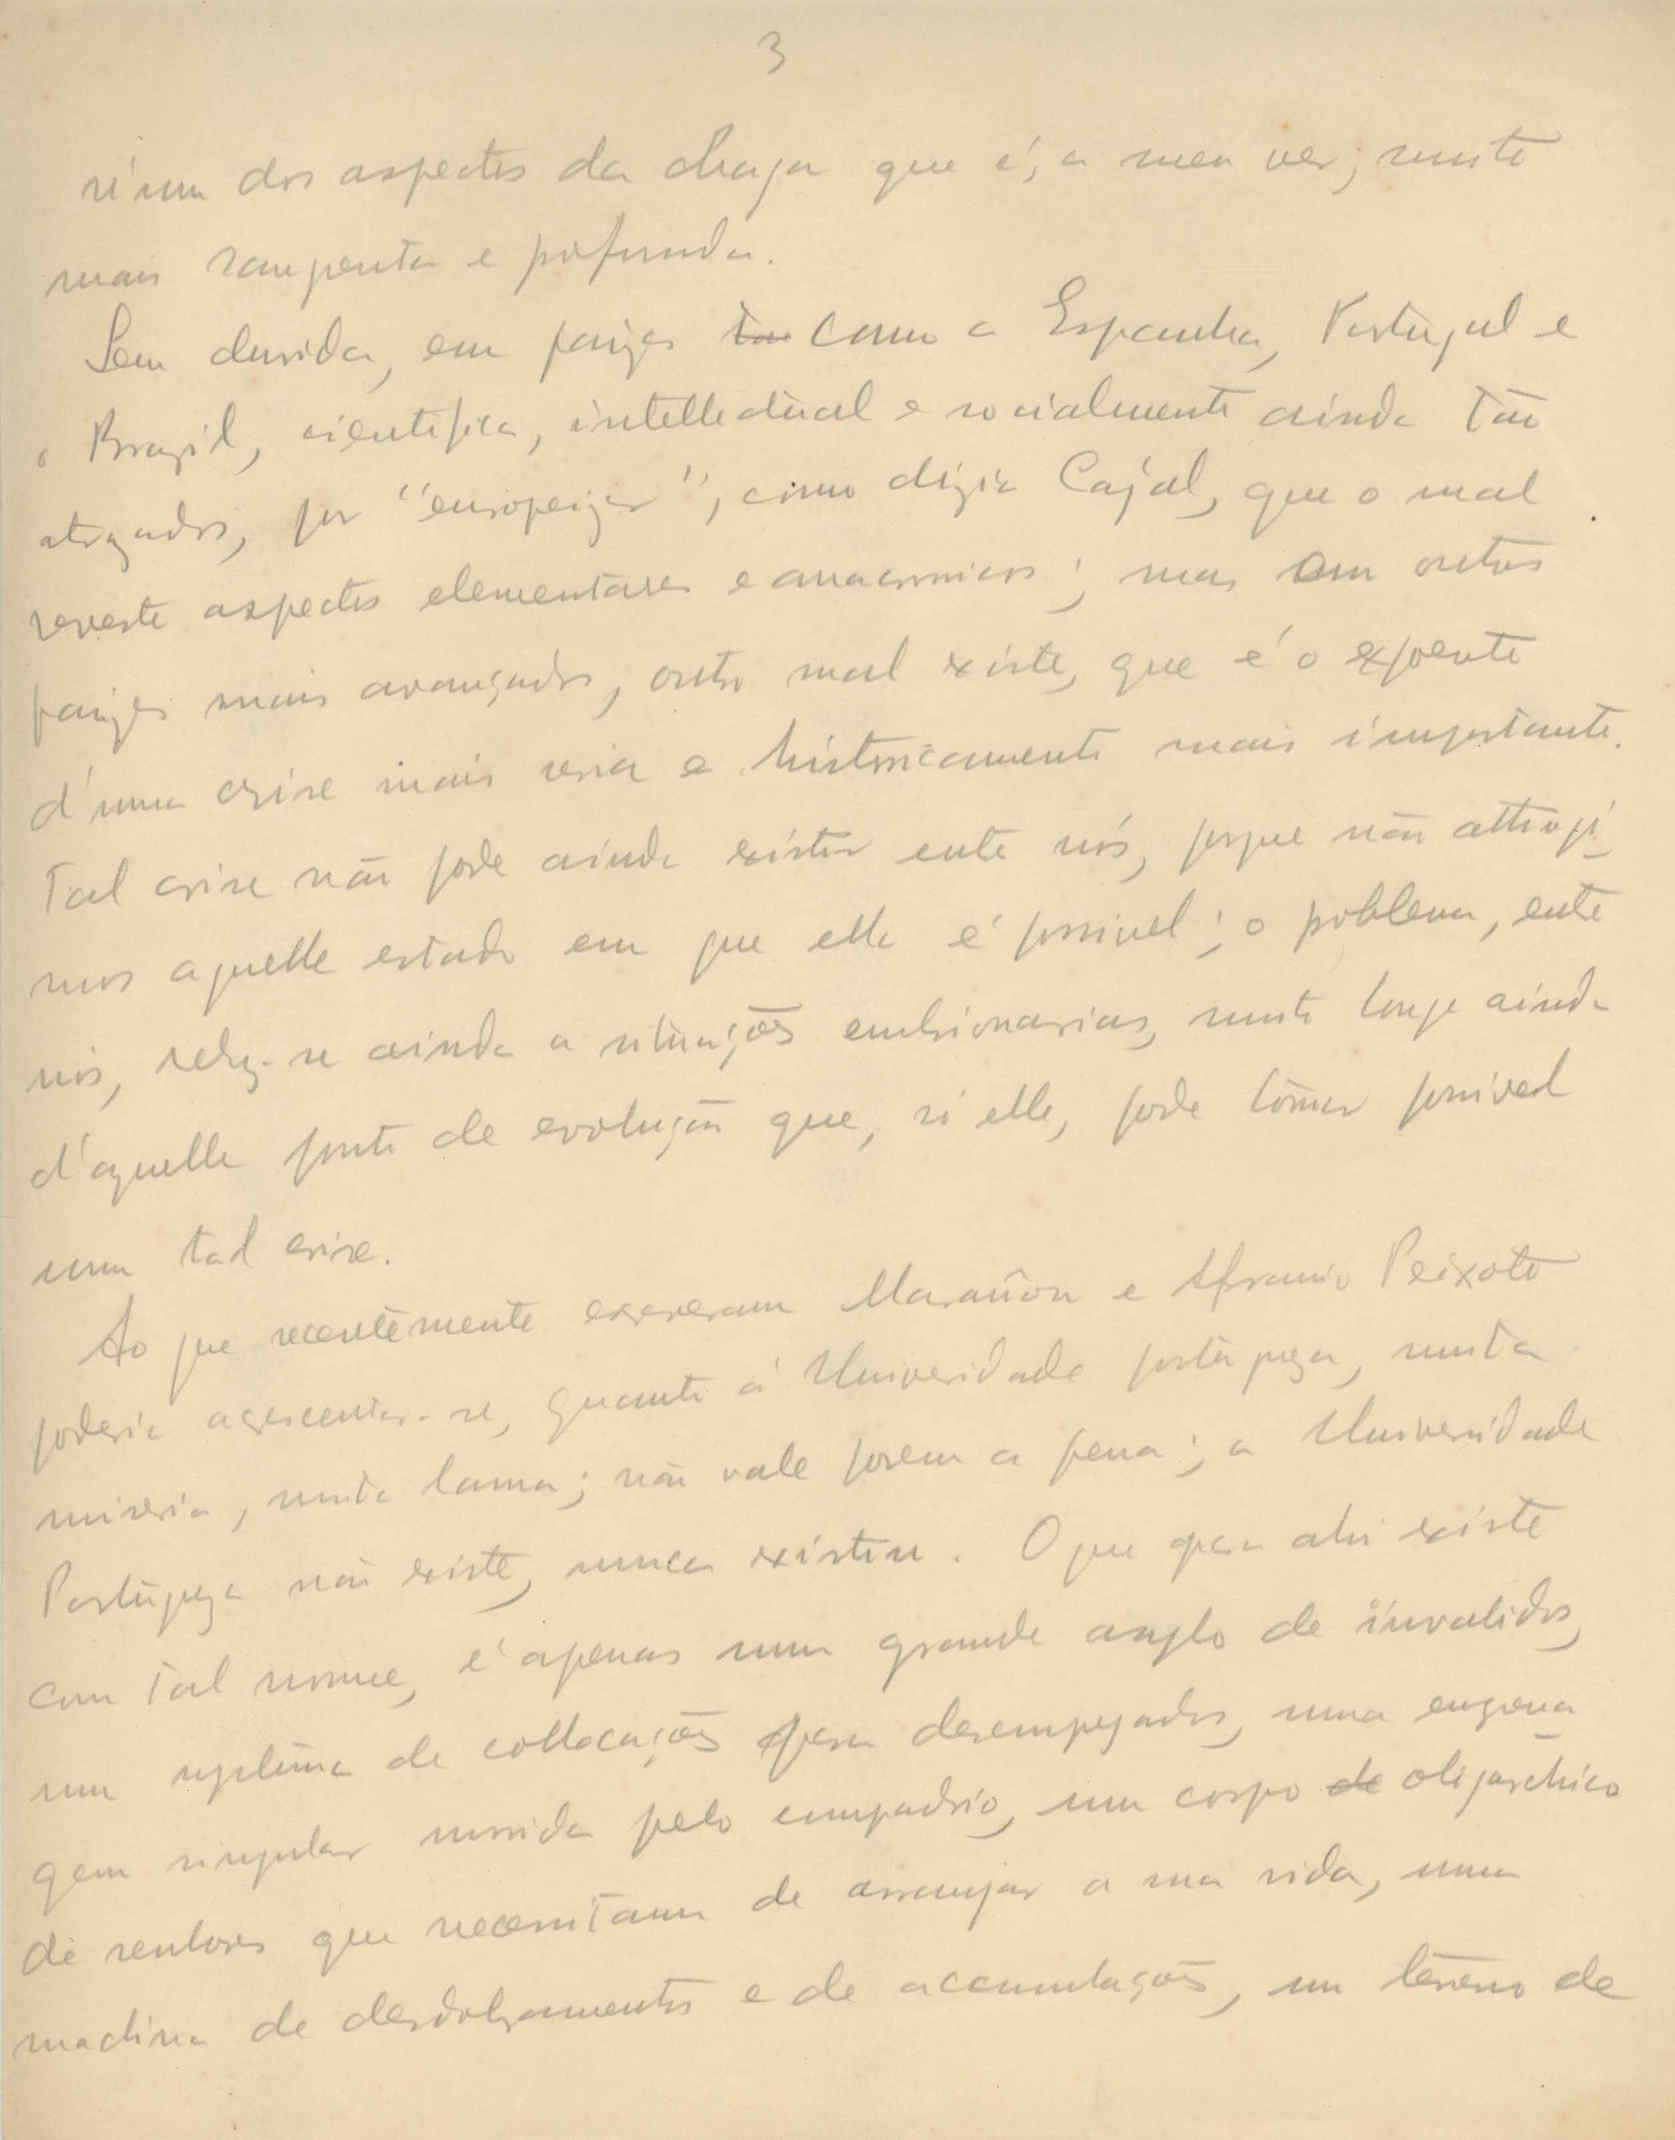 3
só um dos aspectos da chaga que é, a meu ver, muito
mais sangrenta e profunda.
Sem duvida, em paizes como a Espanha, Portugal e
o Brazil, scientifica, intellectual e socialmente ainda tão
atrazados, por "europeizar", como dizia Cajal, que o mal
reveste aspectos elementares e anacronicos; mas em outros
paizes mais avançados, outro mal existe, que é o expoente
d'uma crise mais seria e historicamente mais importante.
Tal crise não pode ainda existir entre nós, porque não attingi
mos aquelle estado em que ella é possivel; o problema, entre
nós, reduz-se ainda a situações embrionarias, muito longe ainda
d'aquelle ponto de evolução que, só elle, pode tornar possivel
uma tal crise.
Ao que recentemente escreveram Marañon e Afranio Peixoto
poderia acrescentar-se, quanto á Universidade portugueza, muita
miseria, muita lama; não vale porem a pena; a Universidade
Portugueza não existe, nunca existiu. O que para ahi existe
com tal nome, é apenas um grande asylo de invalidos,
um systema de collocações para desempregados, uma engrena
gem singular movida pelo compadrio, um corpo de oligarchico
de senhores que necessitam de arranjar a sua vida, uma
machina de desdobramentos e de accumulações, um terreno de